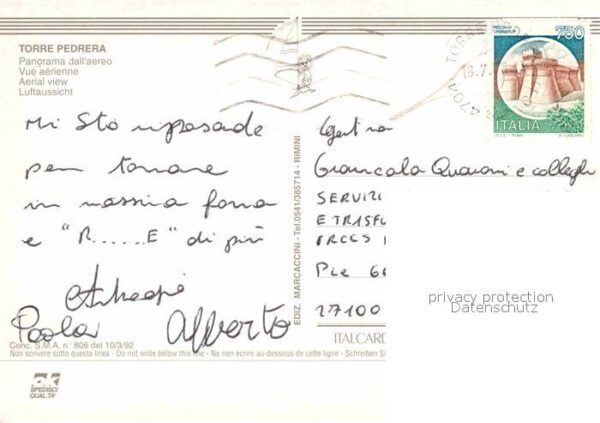 TORRE PEDRERA
Panorama dall'aereo
Vue aérienne
Aerial view
Luftaussicht
750
ITALIA
Mi sto riposando
per tornare
in massima forma
e "R......E" di più
Paola
Alberto
EDIZ. MARCACCINI - Tel. 0541/385714 - RIMINI
Giancarla e colleghi
SERVIZI
E TRASF
IRCCS
Ple
27100
ITALCARD
privacy protection
Datenschutz
Conc. S.M.A. n° 806 del 10/3/92
Non scrivere sotto questa linea - Do not write below this line - Ne rien écrire au-dessous de cette ligne - Schreiben Si
SPEDISCI
QUAL.TA'